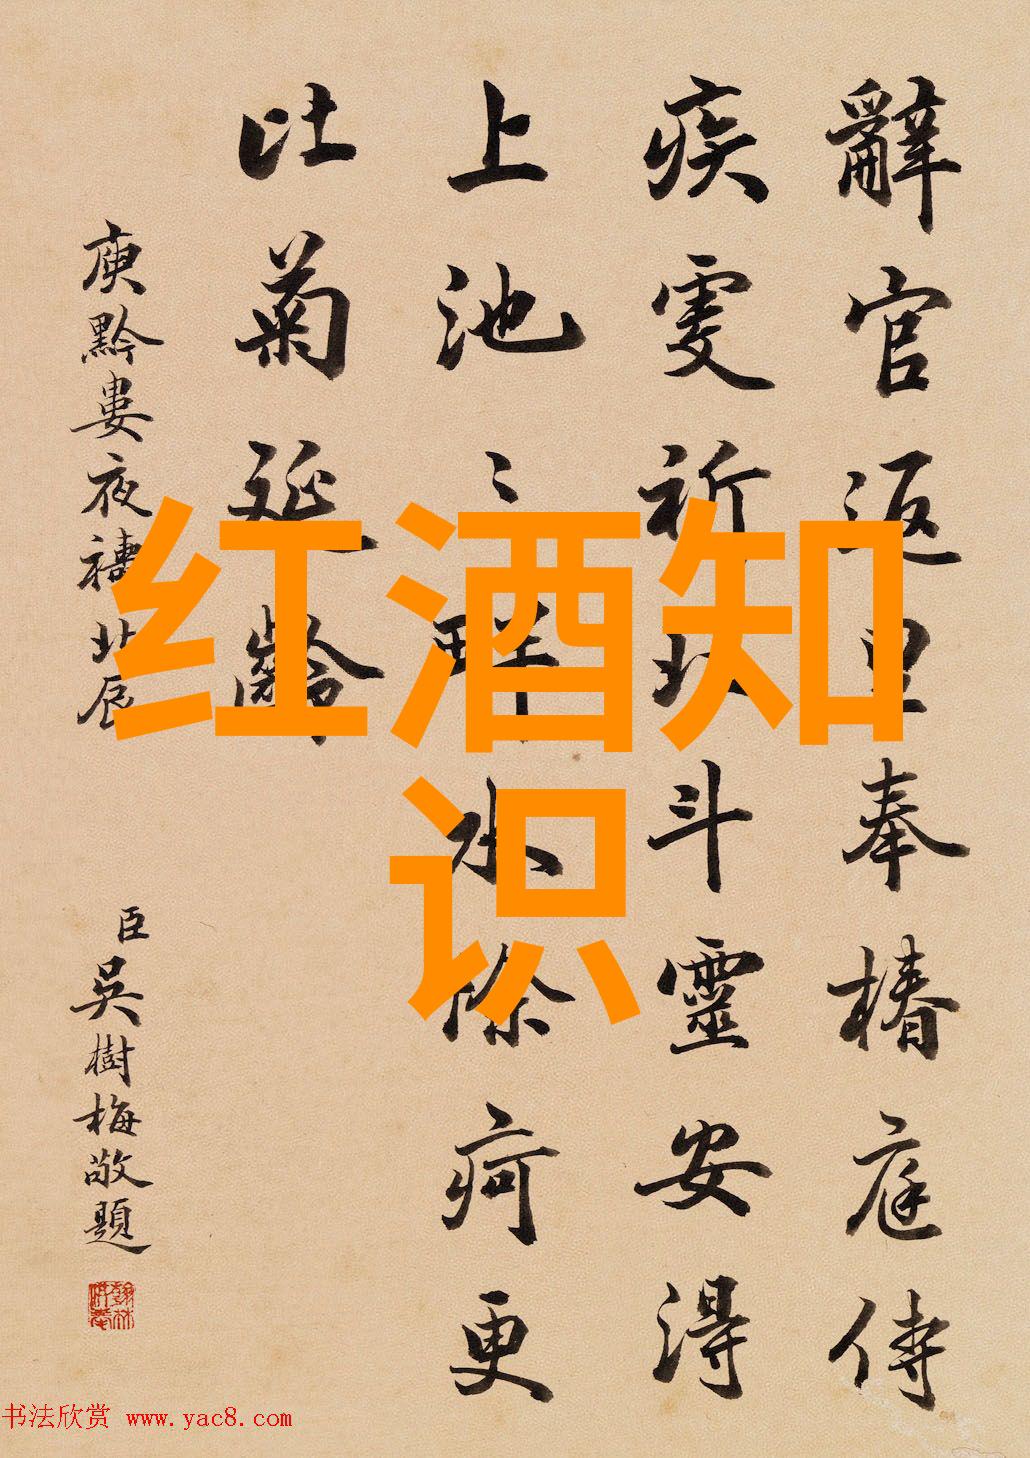 辭官返里奉椿庭侍
疾虔祈北斗靈安得
上池〻畔水除疴更
比菊延齡
庾黔婁夜禱北辰
臣吳樹梅敬題
红酒知
识
书法欣赏 www.yac8.com